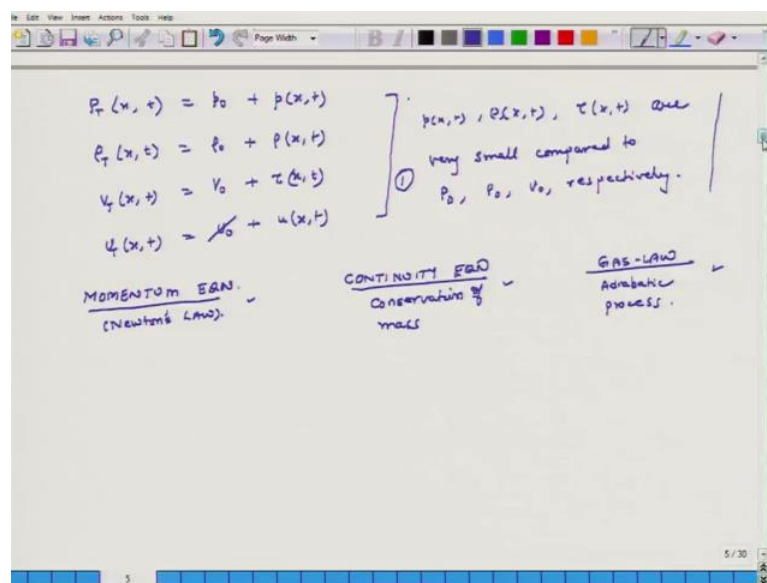 Edit View Insert Actions Tools Help
Page Width
B I
P_T (x, t) = p_0 + p(x,t)
ρ_T (x, t) = ρ_0 + ρ(x,t)
V_T (x,t) = V_0 + τ(x,t)
u_T (x,t) = u_0 + u(x,t)
①
p(x,t), ρ(x,t), τ(x,t) are
very small compared to
P_0, ρ_0, V_0, respectively.
MOMENTUM EQN.
(Newton's LAW).
CONTINUITY EQN
Conservation of
mass
GAS-LAW
Adiabatic
process.
5 / 30
5